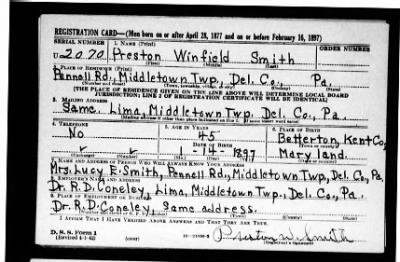 REGISTRATION CARD—(Men born on or after April 28, 1877 and on or before February 16, 1897)
SERIAL NUMBER 1. NAME (Print) ORDER NUMBER
U 2070 Preston Winfield Smith
(First) (Middle) (Last)
2. PLACE OF RESIDENCE (Print)
Pennell Rd, Middletown Twp, Del. Co., Pa.
(Number and street) (Town, township, village, or city) (County) (State)
[THE PLACE OF RESIDENCE GIVEN ON THE LINE ABOVE WILL DETERMINE LOCAL BOARD
JURISDICTION; LINE 2 OF REGISTRATION CERTIFICATE WILL BE IDENTICAL]
3. MAILING ADDRESS
Same. Lima, Middletown Twp. Del. Co., Pa.
[Mailing address if other than place indicated on line 2. If same insert word same]
4. TELEPHONE 5. AGE IN YEARS 6. PLACE OF BIRTH
No 45 Betterton, Kent Co
DATE OF BIRTH (Town or county)
1897 Maryland.
(Exchange) (Number) (Mo.) (Day) (Yr.) (State or country)
7. NAME AND ADDRESS OF PERSON WHO WILL ALWAYS KNOW YOUR ADDRESS
Mrs. Lucy E. Smith, Pennell Rd, Middletown Twp, Del Co, Pa
8. EMPLOYER'S NAME AND ADDRESS
Dr. R. D. Coneley, Lima, Middletown Twp., Del Co, Pa.
9. PLACE OF EMPLOYMENT OR BUSINESS
Dr. R. D. Coneley, Same address.
I AFFIRM THAT I HAVE VERIFIED ABOVE ANSWERS AND THAT THEY ARE TRUE.
D. S. S. Form 1
(Revised 4-1-42) (over) Preston W. Smith
(Registrant's signature)